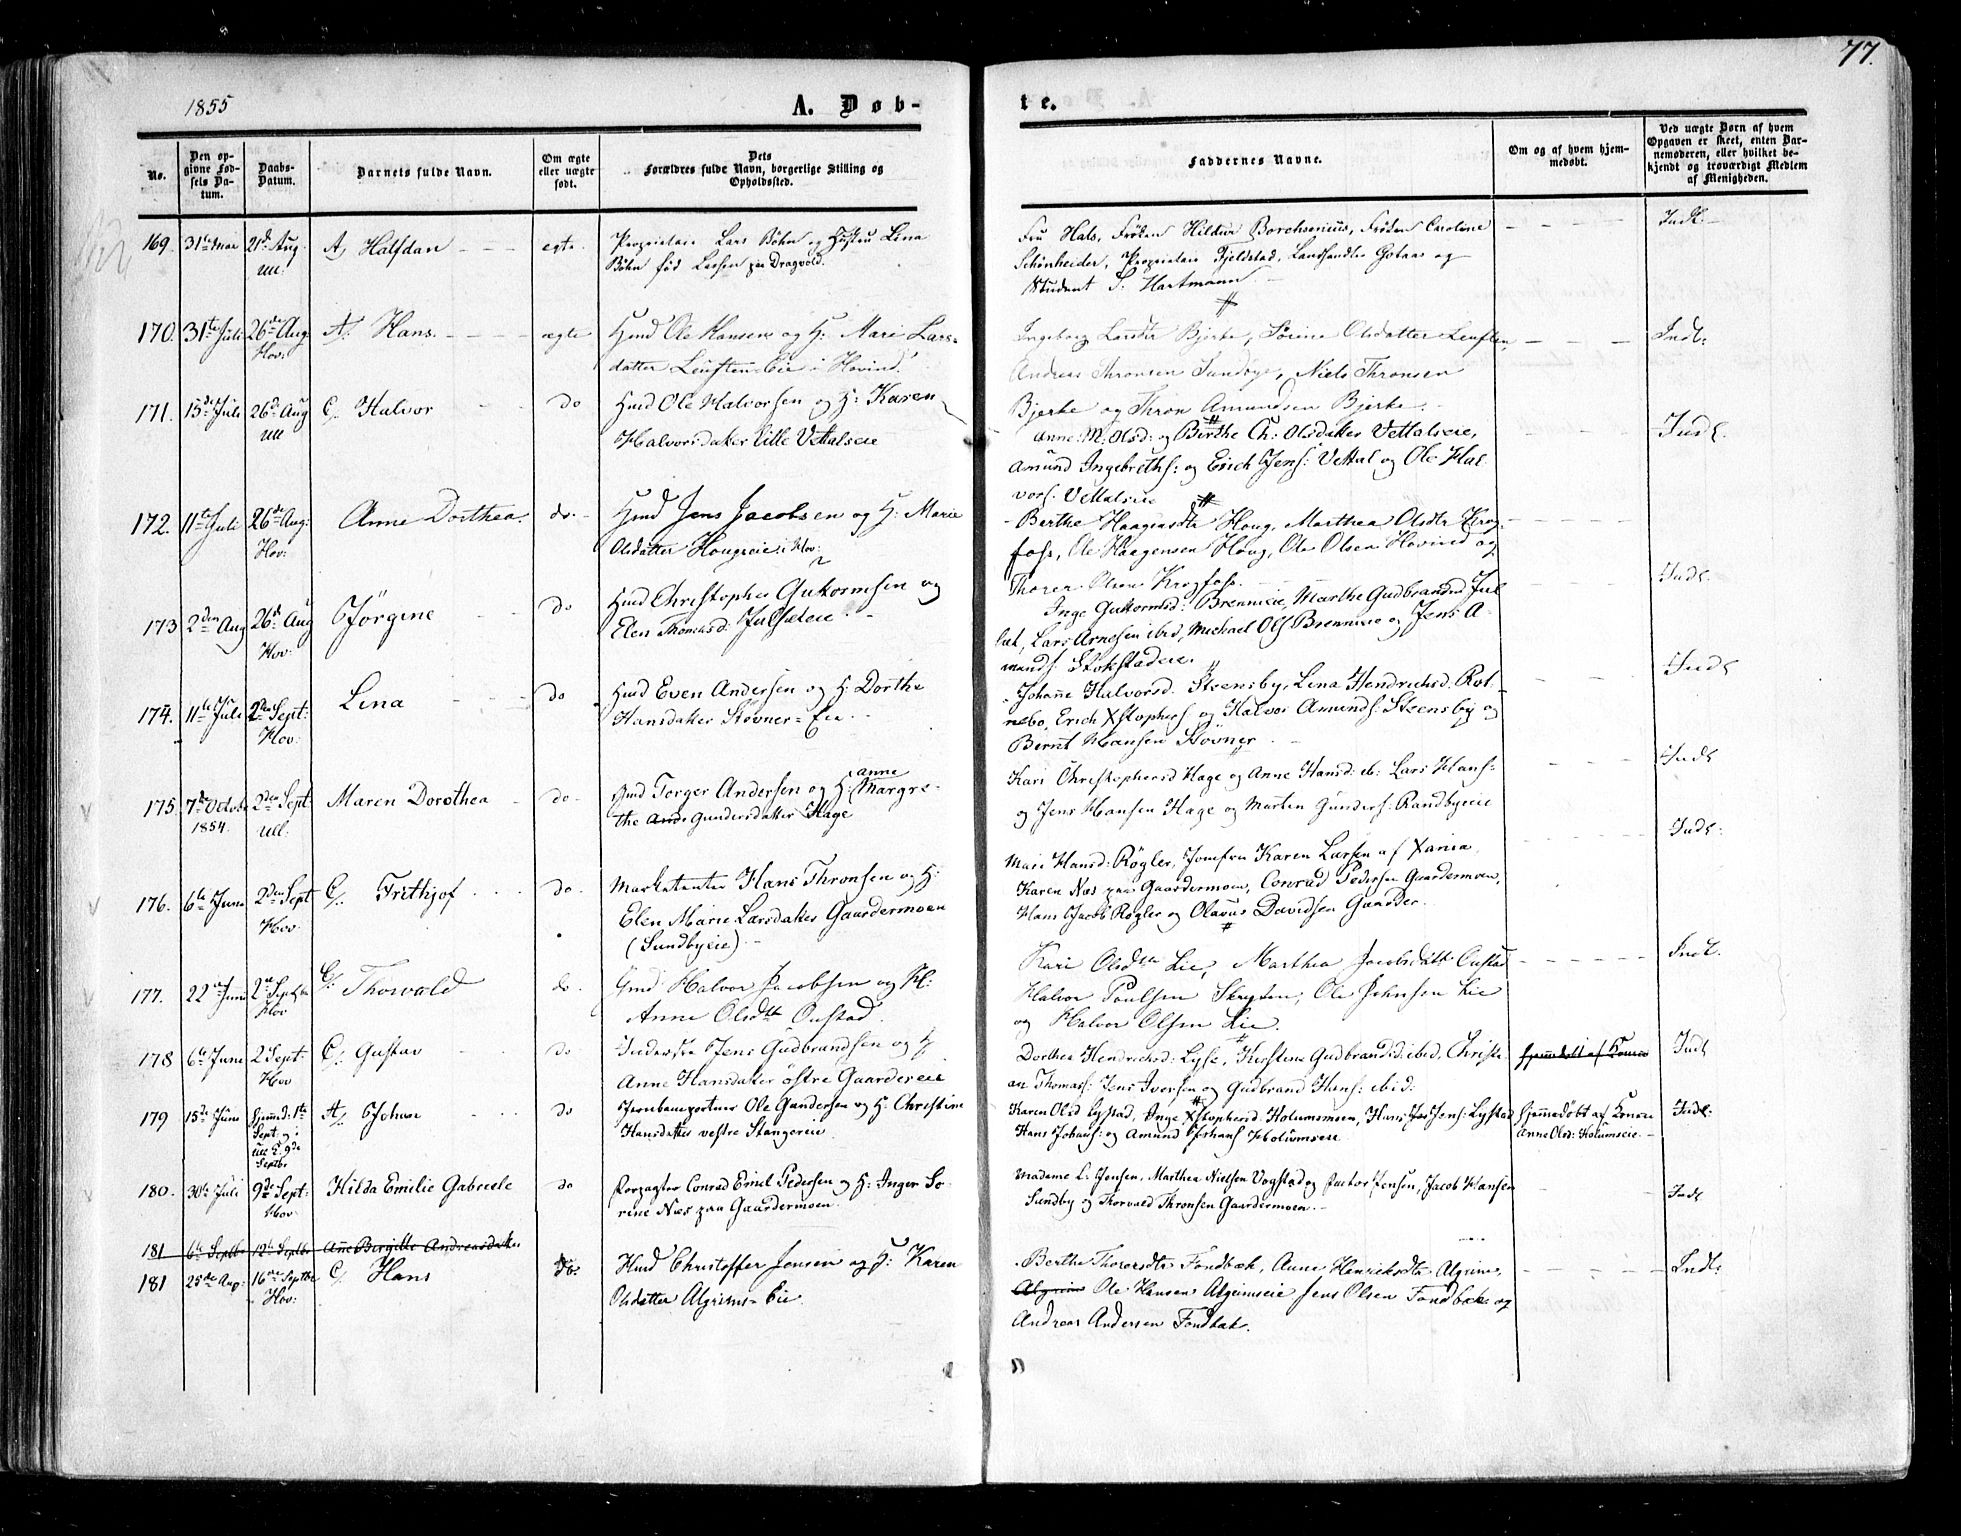 77.
1855
A. Døb-
te.
No.
Den op-
givne Fød-
sels Da-
tum.
Daabs-
Datum.
Barnets fulde Navn.
Om ægte
eller uægte
født.
Dets
Forældres fulde Navn, borgerlige Stilling og
Opholdssted.
Faddernes Navne.
Om og af hvem hjem-
medøbt.
Ved uægte Børn af hvem
Opgaven er skeet, enten Bar-
nemoderen, eller hvilket be-
kjendt og troværdigt Medlem
af Menigheden.
169. 31te Mai 21de Aug. A/ Halfdan egte. Proprietair Lars Bøhn og Hustru Lina
Ull. Bøhn fød Larsen paa Dragvold.
Fru Hals, Frøken Hildur Borchsenius, Frøken Caroline
Schönheider, Proprietair Fjeldstad, Landhandler Gotaas og
Student S. Hartmann
Indl.
170. 31te Juli 26de Aug. A/ Hans. ægte Hmd Ole Hansen og H: Mari Lars-
Hov: datter Leuften-Eie i Hovind.
Ingeborg Larsdtr Bjerke, Sørine Olsdatter Leuften,
Andreas Thronsen Sundbye, Niels Thronsen
Bjerke og Thron Amundsen Bjerke.
Indl:
171. 15de Juli 26de Aug C/. Halvor do Hmd Ole Halvorsen og H: Karen
Ull Halvorsdatter Lille Vettalseie
Anne M: Olsd: og Birthe Ch: Olsdatter Vettalseie,
Amund Ingebreths: og Erich Jens: Vettal og Ole Hal-
vors. Vettalseie
Indl.
172. 11te Juli 26de Aug: Anne Dorthea. do. Hmd Jens Jacobsen og H: Marie
Hov: Olsdatter Hougseie i Hov:
Berthe Haagensdtr Houg, Marthea Olsdtr Krog-
foss, Ole Haagensen Houg, Ole Olsen Hovind og
Thorer Olsen Krogfoss.
Indl.
173 2den Aug 26de Aug Jørgine do Hmd Christopher Gutormsen og
Hov: Elen Thomasd. Julsæteie.
Inge Gutormsd: Brennieie, Marthe Gudbrandsd Jul-
sæt, Lars Arnesen ibid, Michael Ols Brennieie og Jens A-
munds Stokstadeie.
Indl
174. 11te Juli 2den Sept: Lina do Hmd Even Andersen og H: Dorthe
Hov: Hansdatter Støvner-Eie.
Johanne Halvorsd. Steensby, Lina Hendrichsd. Rot-
nebo, Erich Xstophers og Halvor Amunds: Steensby og
Bernt Hansen Støvner
Indl
175. 7de Octobr 2den Sept: Maren Dorothea do. Gmd Torger Andersen og H: Anne Margre-
1854. Ull. the And: Gundersdatter Hage
Kari Christophersd Hage og Anne Hansd: ib: Lars Hans:
og Jens Hansen Hage og Morten Gunders: Randbyeie
Indl:
176. 6te June 2den Sept C/. Frithjof do. Marketenter Hans Thronsen og H:
Hov: Elen Marie Larsdatter Gaardermoen
(Sundbyeie)
Mari Hansd: Røgler, Jomfru Karen Larsen af Xania,
Karen Næs paa Gaardermoen, Conrad Pedersen Gaardermoen,
Hans Jacob Røgler og Olavus Davidsen Gaarder.
Indl.
177. 22de Juni 2den Septbr C/. Thorvald do. Gmd Halvor Jacobsen og H:
Hov Anne Olsdtt Oustad.
Kari Olsdtt Lie, Marthea Jacobsdatt: Oustad
Halvor Poulsen Skryten, Ole Johnsen Lie
og Halvor Olsen Lie.
178 6te June 2 Sept: C/. Gustav do Inderste Jens Gudbrandsen og H:
Hov Anne Hansdatter østre Gaardereie
Dorthea Hendrichsd: Lyse, Kirstine Gudbrandsd: ibid. Christi-
an Thomass: Jens Iversen og Gudbrand Hans: ibid:
hjemmedøbt af Konen
Indl
179 15de June hjemmd: 1te A/. Johan do Jernbaneportner Ole Gundersen og H: Christine
Sept. og i
Ull K. 9de
Septbr
Hansdatter vestre Stangereie.
Karen Olsd Lystad, Inge Xstophersd. Holummoen, Hans Jo Jens: Lystad
Hans Johans: og Amund Johans Holumseie
hjemmedøbt af Konen
Anne Olsd: Holumseie.
Indl.
180. 30te Juli 9de Sept: Hilda Emilie Gabriele do Forpagter Conrad Emil Pedersen og H: Inger So-
Hov: rine Næs paa Gaardermoen
Madame L. Jensen, Marthea Nielsen Vogstad og Factor Jensen, Jacob Hansen
Sundby og Thorvald Thronsen Gaardermoen.
Indl
181 6te Septbr 12te Septbr Anne Birgitte Andreasdatter
181 25de Aug: 16de Septbr C/. Hans do. Hmd Christoffer Jensen og H: Karen
Hov: Olsdatter Algrims-Eie
Berthe Thorersdtr Fondbæk, Anne Henriksdtr Algrim,
Algrim Ole Hansen Algrimseie Jens Olsen Fondbæk og
Andreas Andersen Fondbæk.
Indl: